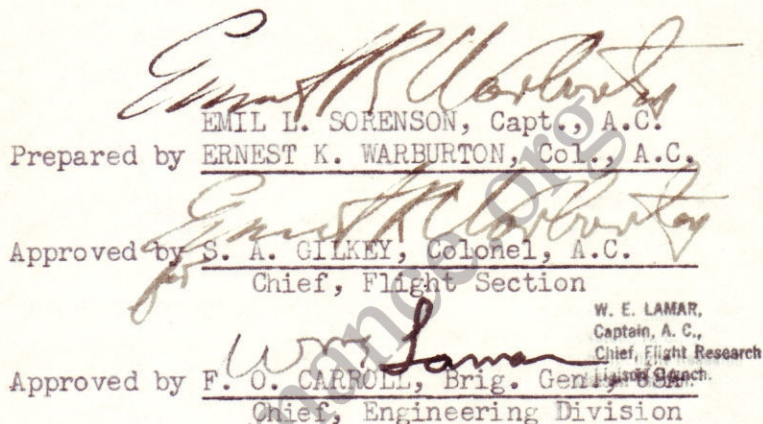 Ernest K Warburton
EMIL L. SORENSON, Capt., A.C.
Prepared by ERNEST K. WARBURTON, Col., A.C.
Ernest K Warburton
Approved by S. A. GILKEY, Colonel, A.C.
for
Chief, Flight Section
W. E. LAMAR,
Captain, A. C.,
Wm Lamar Chief, Flight Research
Liaison Branch.
Approved by F. O. CARROLL, Brig. Gen., USA.
Chief, Engineering Division
mance.org